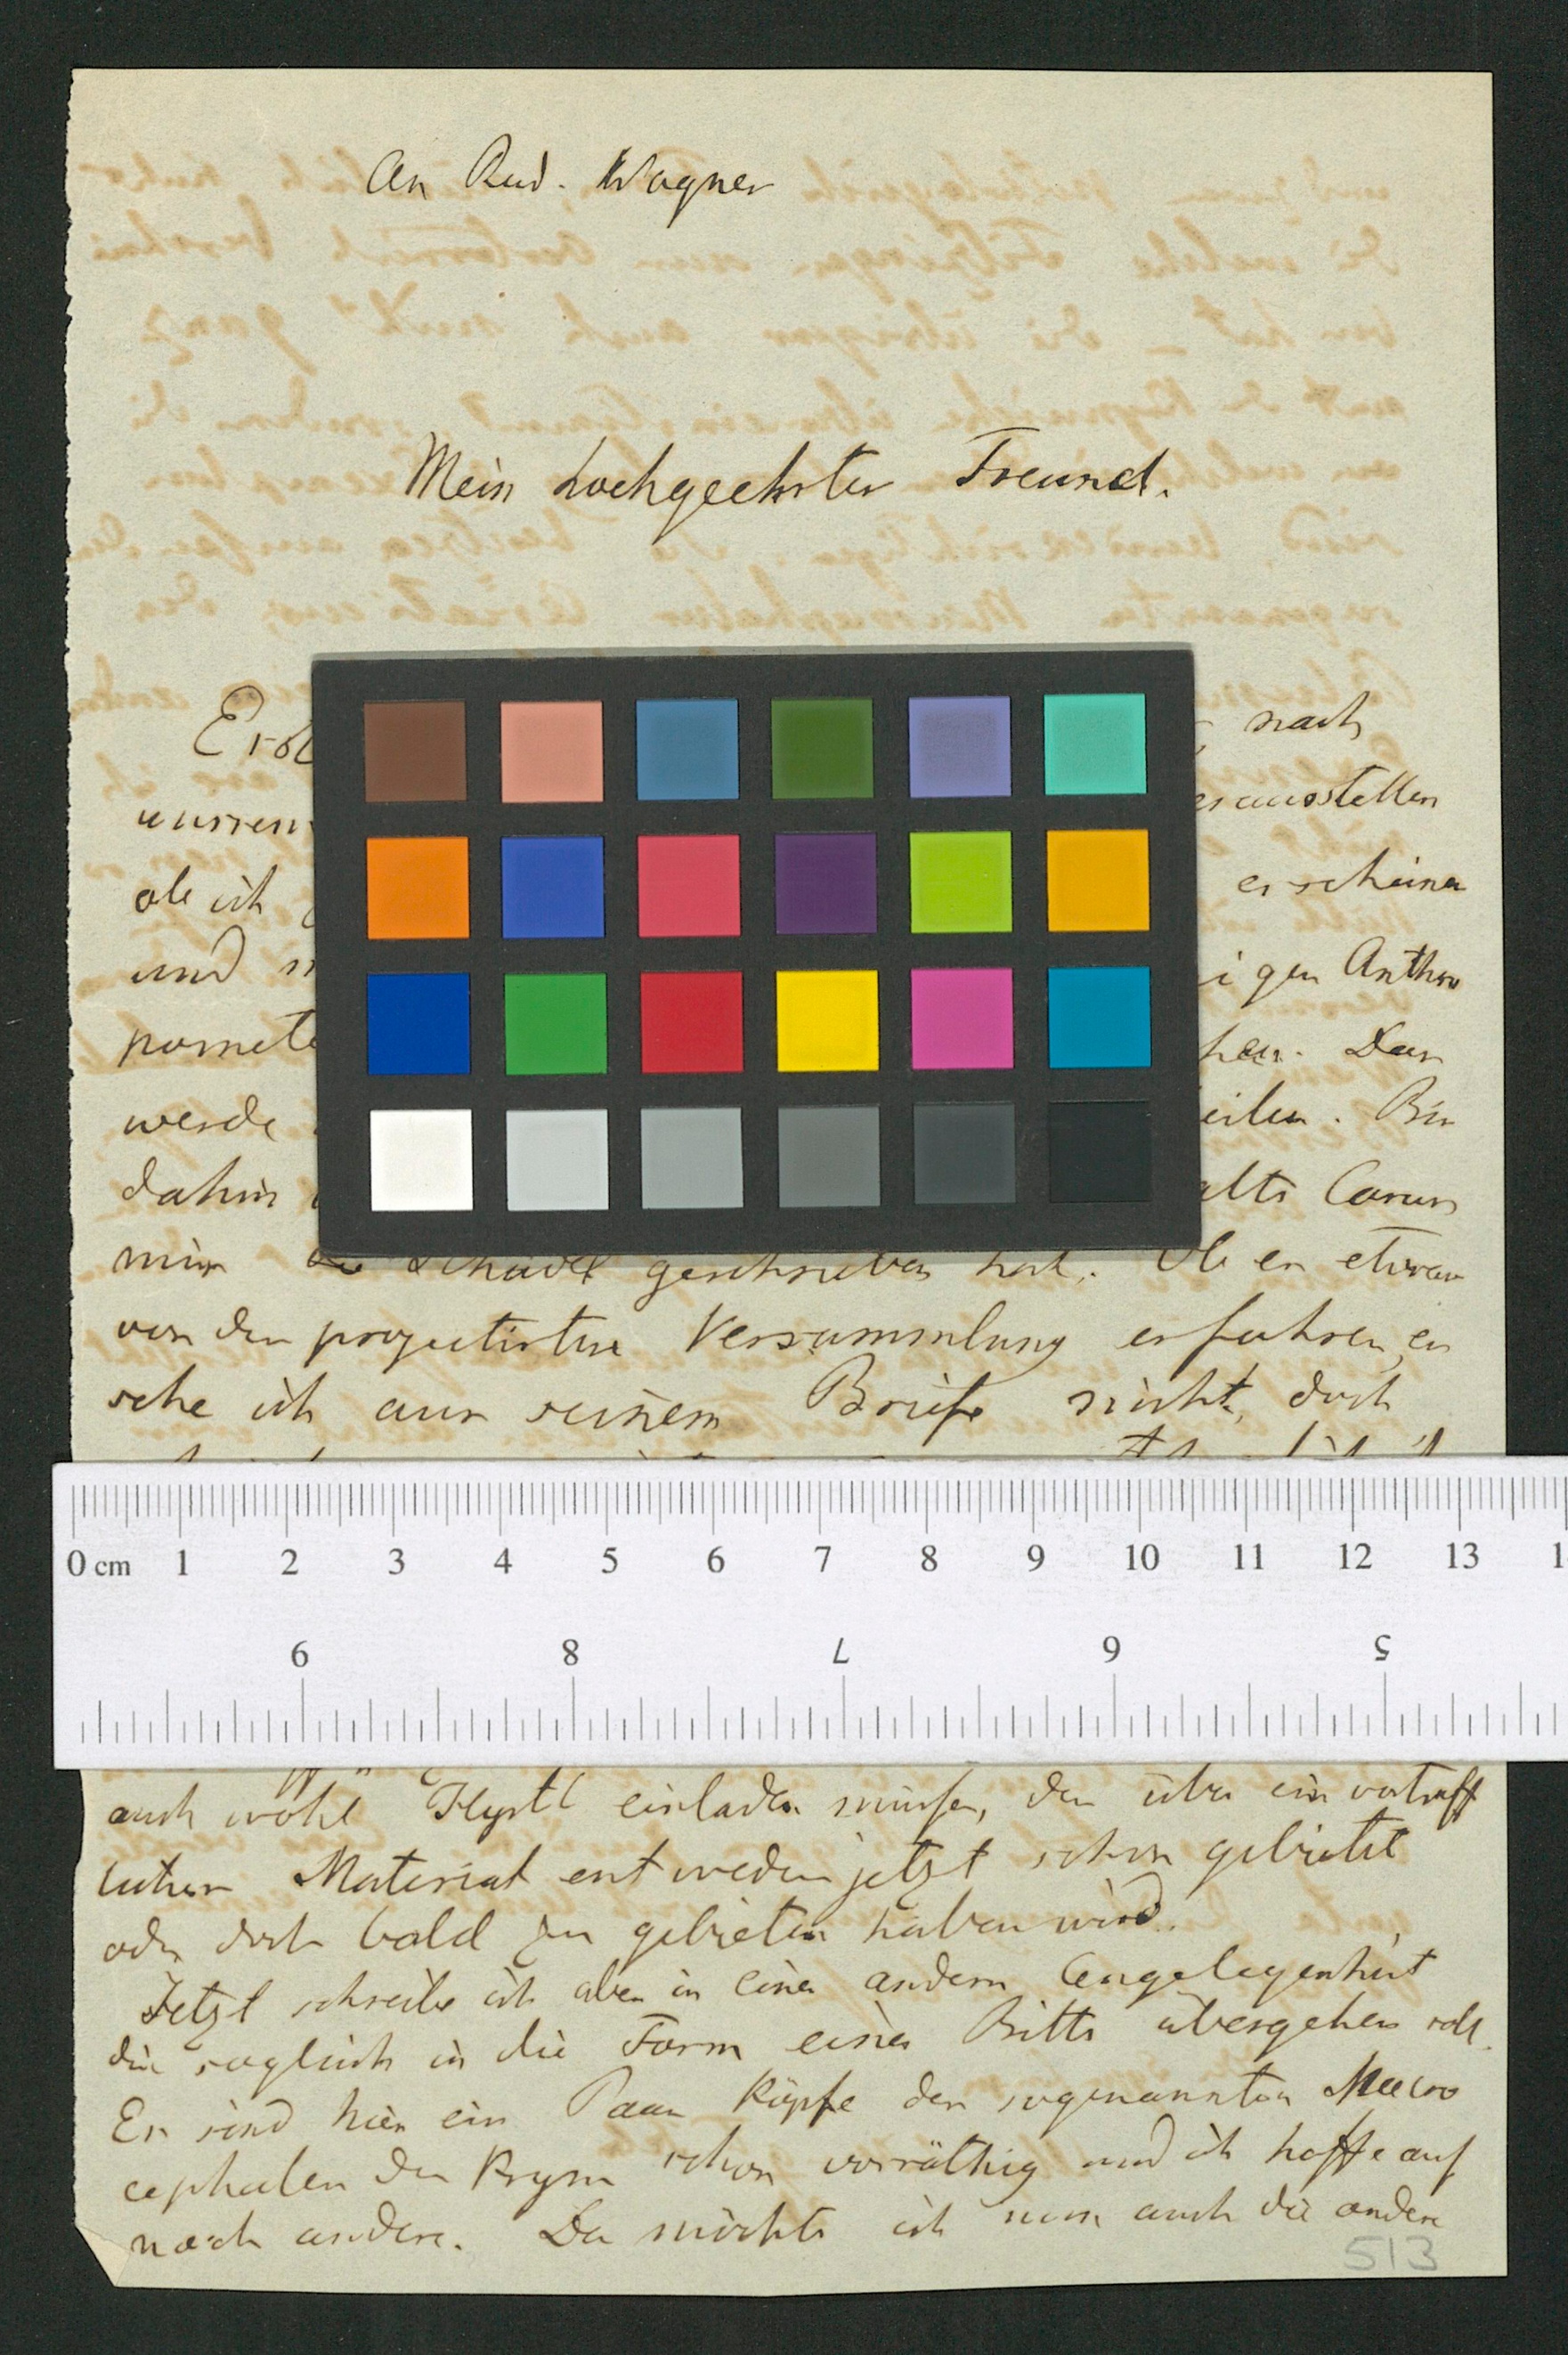 An Rud. Wagner
Mein hochgeehrter Freund.
nach
ausstellen
ob ich erscheinen
und igen Anthro
pomet hen. Das
werde eilen. Bis
dahin alte Carus
mir Schädel geschrieben hat. Ob er etwas
von der projectirten Versammlung erfahren, er
sehe ich aus seinem Briefe nicht, doch
0 cm 1 2 3 4 5 6 7 8 9 10 11 12 13 1
9 8 7 6 5
auch wohl Hyrtl einladen müssen, der über ein vortreff
liches Material entweder jetzt schon gebietet
oder doch bald zu gebieten haben wird.
Jetzt schreibe ich aber in einer andern Angelegenheit
die sogleich in die Form einer Bitte übergehen soll.
Es sind hier ein Paar Köpfe der sogenannten Macro
cephalen der Krym schon vorräthig und ich hoffe auf
noch andere. Da möchte ich nun auch die andere
513